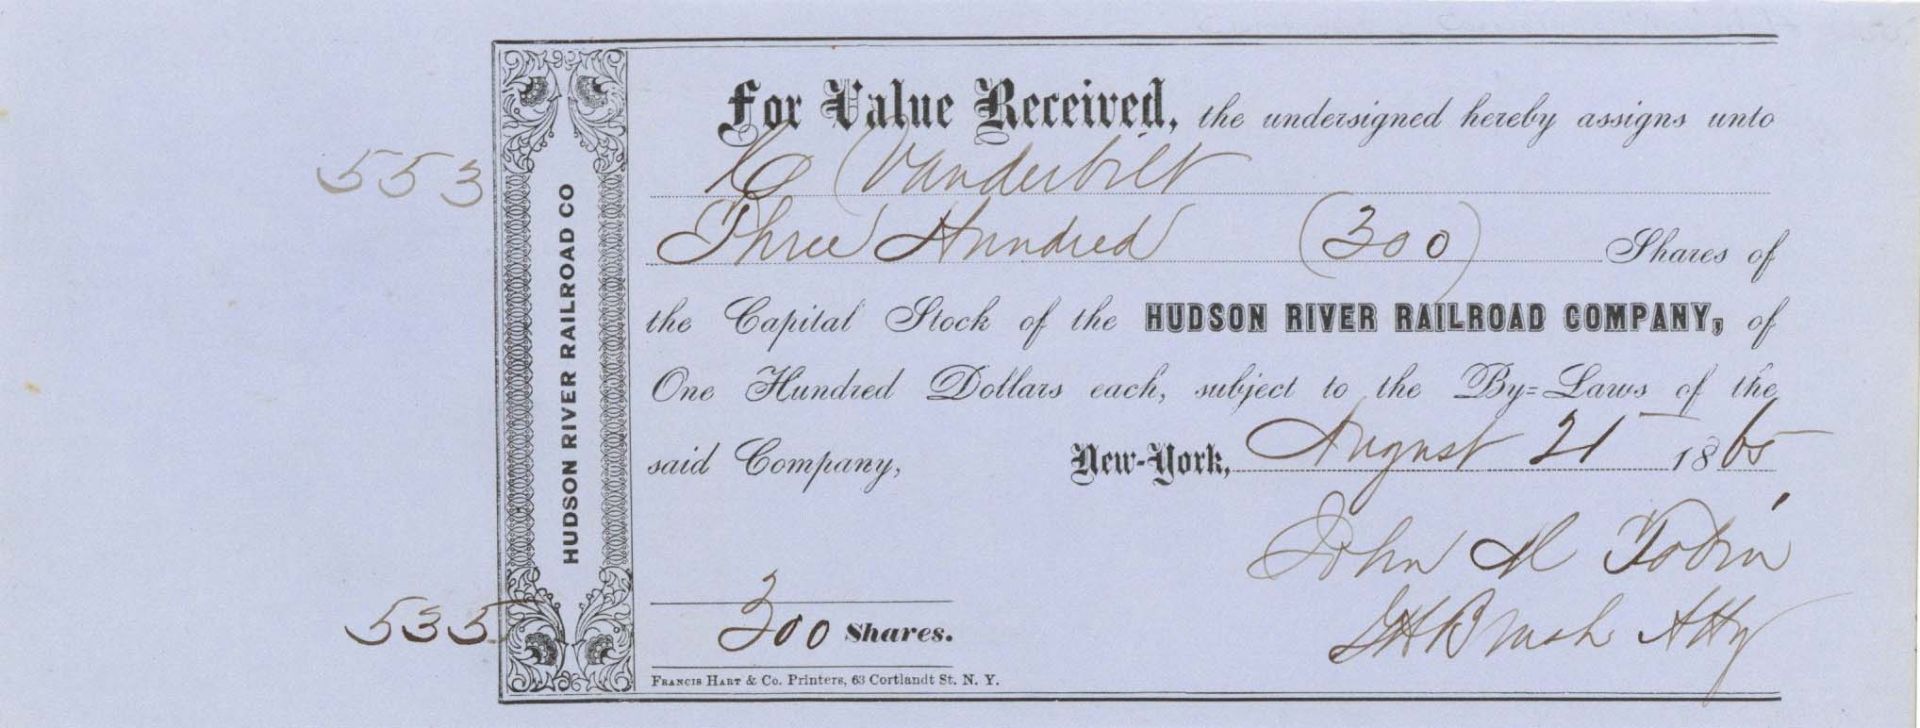 For Value Received, the undersigned hereby assigns unto
C Vanderbilt
Three Hundred (300) Shares of
the Capital Stock of the HUDSON RIVER RAILROAD COMPANY, of
One Hundred Dollars each, subject to the By=Laws of the
said Company, New-York, August 21 1865
John M Tobin
Brush Atty
300 Shares.
FRANCIS HART & Co. Printers, 63 Cortlandt St. N. Y.
HUDSON RIVER RAILROAD CO
553
535